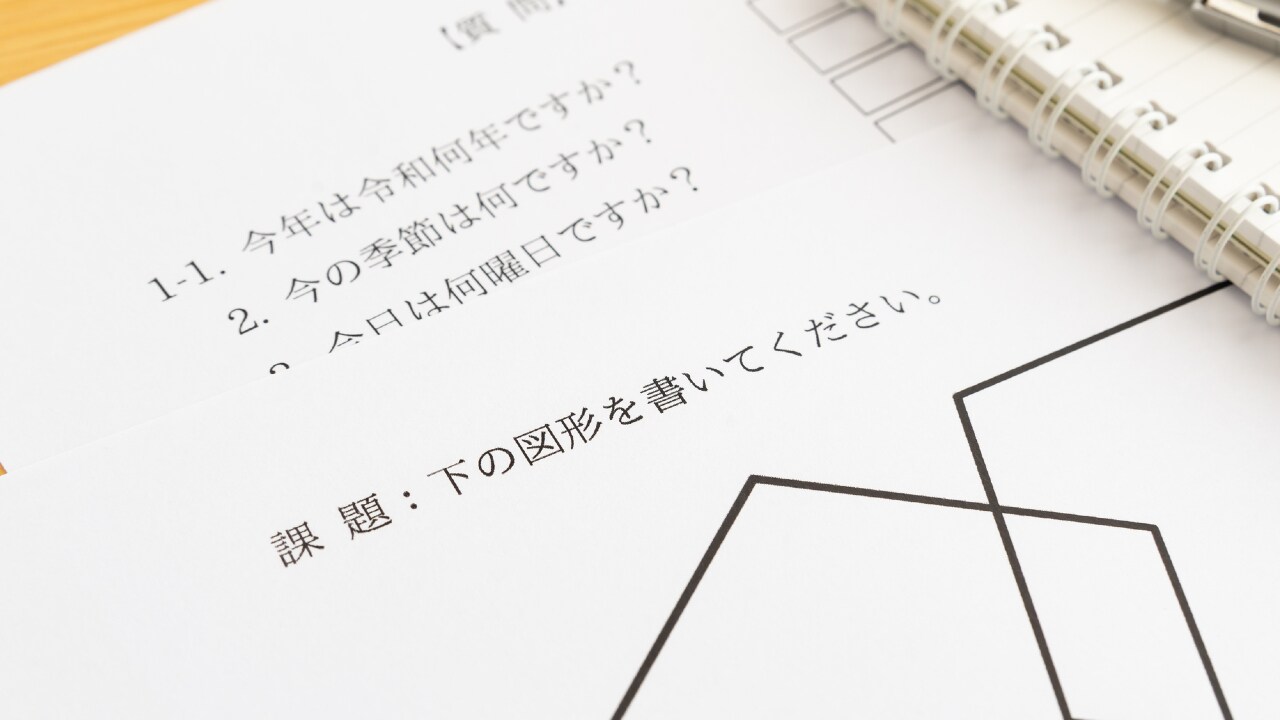 【質 問】
1-1. 今年は令和何年ですか？
2. 今の季節は何ですか？
3. 今日は何曜日ですか？
課 題：下の図形を書いてください。